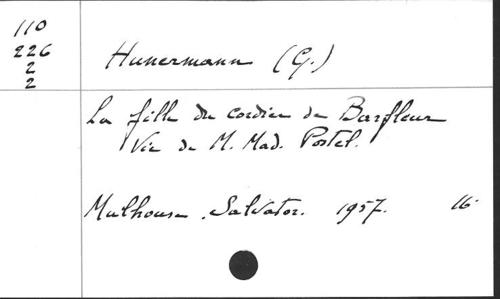 110
226
2
2
Hunermann (G.)
La fille du cordier de Barfleur
Vie de M. Mad. Postel.
Mulhouse. Salvator. 1957. 16.